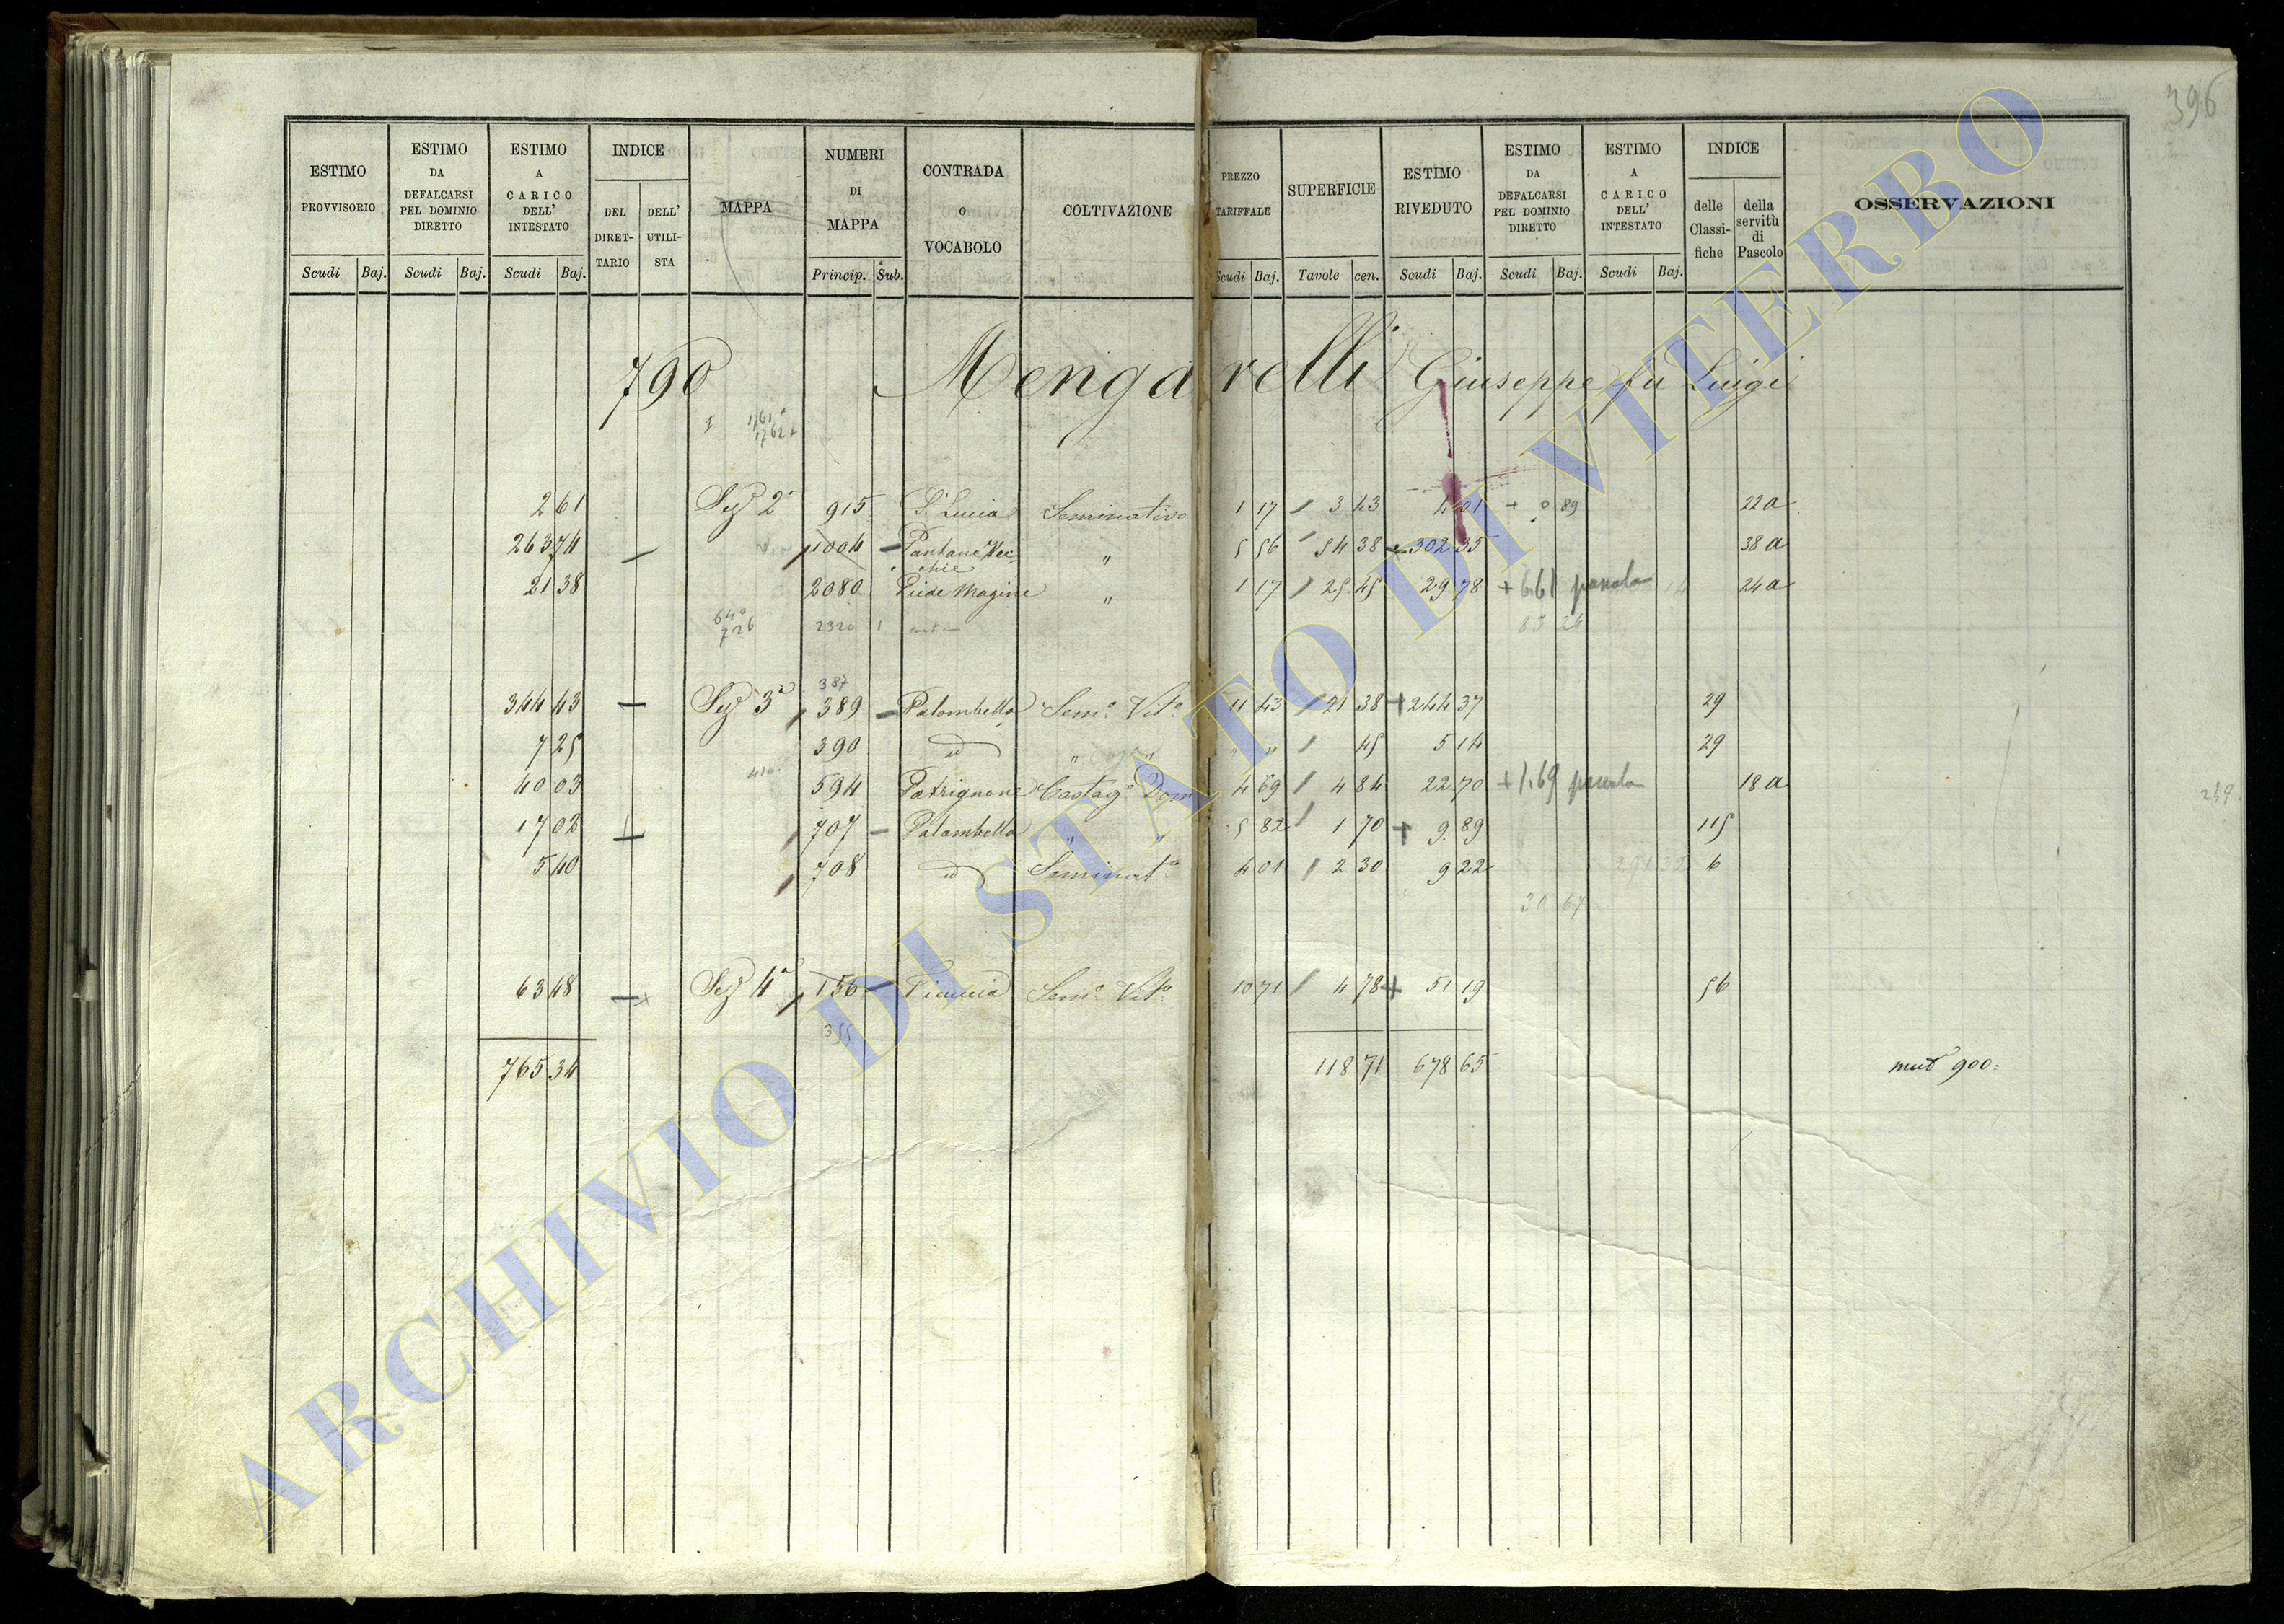 396
ESTIMO PROVVISORIO Scudi Baj.
ESTIMO DA DEFALCARSI PEL DOMINIO DIRETTO Scudi Baj.
ESTIMO A CARICO DELL' INTESTATO Scudi Baj.
INDICE DEL DIRET-TARIO DELL' UTILI-STA
MAPPA
NUMERI DI MAPPA Princip. Sub.
CONTRADA O VOCABOLO
COLTIVAZIONE
PREZZO TARIFFALE Scudi Baj.
SUPERFICIE Tavole cen.
ESTIMO RIVEDUTO Scudi Baj.
ESTIMO DA DEFALCARSI PEL DOMINIO DIRETTO Scudi Baj.
ESTIMO A CARICO DELL' INTESTATO Scudi Baj.
INDICE delle Classi-fiche della servitù di Pascolo
OSSERVAZIONI
790 Mengarelli Giuseppe fu Luigi
1761
1762
2 61 Sez 2ª 915 S. Lucia Seminativo 1 17 3 43 4 01 + 0 89 22a
263 74 — 1004 — Pantane Vec 5 56 54 38 302 35 38a
chie "
21 38 2080 Piede Magine " 1 17 25 45 29 78 + 6.61 pascolo 24a
640
726 2320 1 83 26
387
344 43 — Sez 3ª 389 — Palombella Semo Vito 11 43 21 38 + 244 37 29
7 25 390 id " " " " 45 5 14 29
410
40 03 594 Patrignone Castago Dom 4 69 4 84 22 70 + 1.69 pascolo 18a
239
17 02 707 — Palombella " " 5 82 1 70 + 9 89 115
5 40 708 id Seminato 4 01 2 30 9 22 291 32 6
30 67
63 48 — Sez 4ª 156 — Semo Vito 10 71 4 78 + 51 19 56
355
765 34 118 71 678 65 mut 900
ARCHIVIO DI STATO DI VITERBO